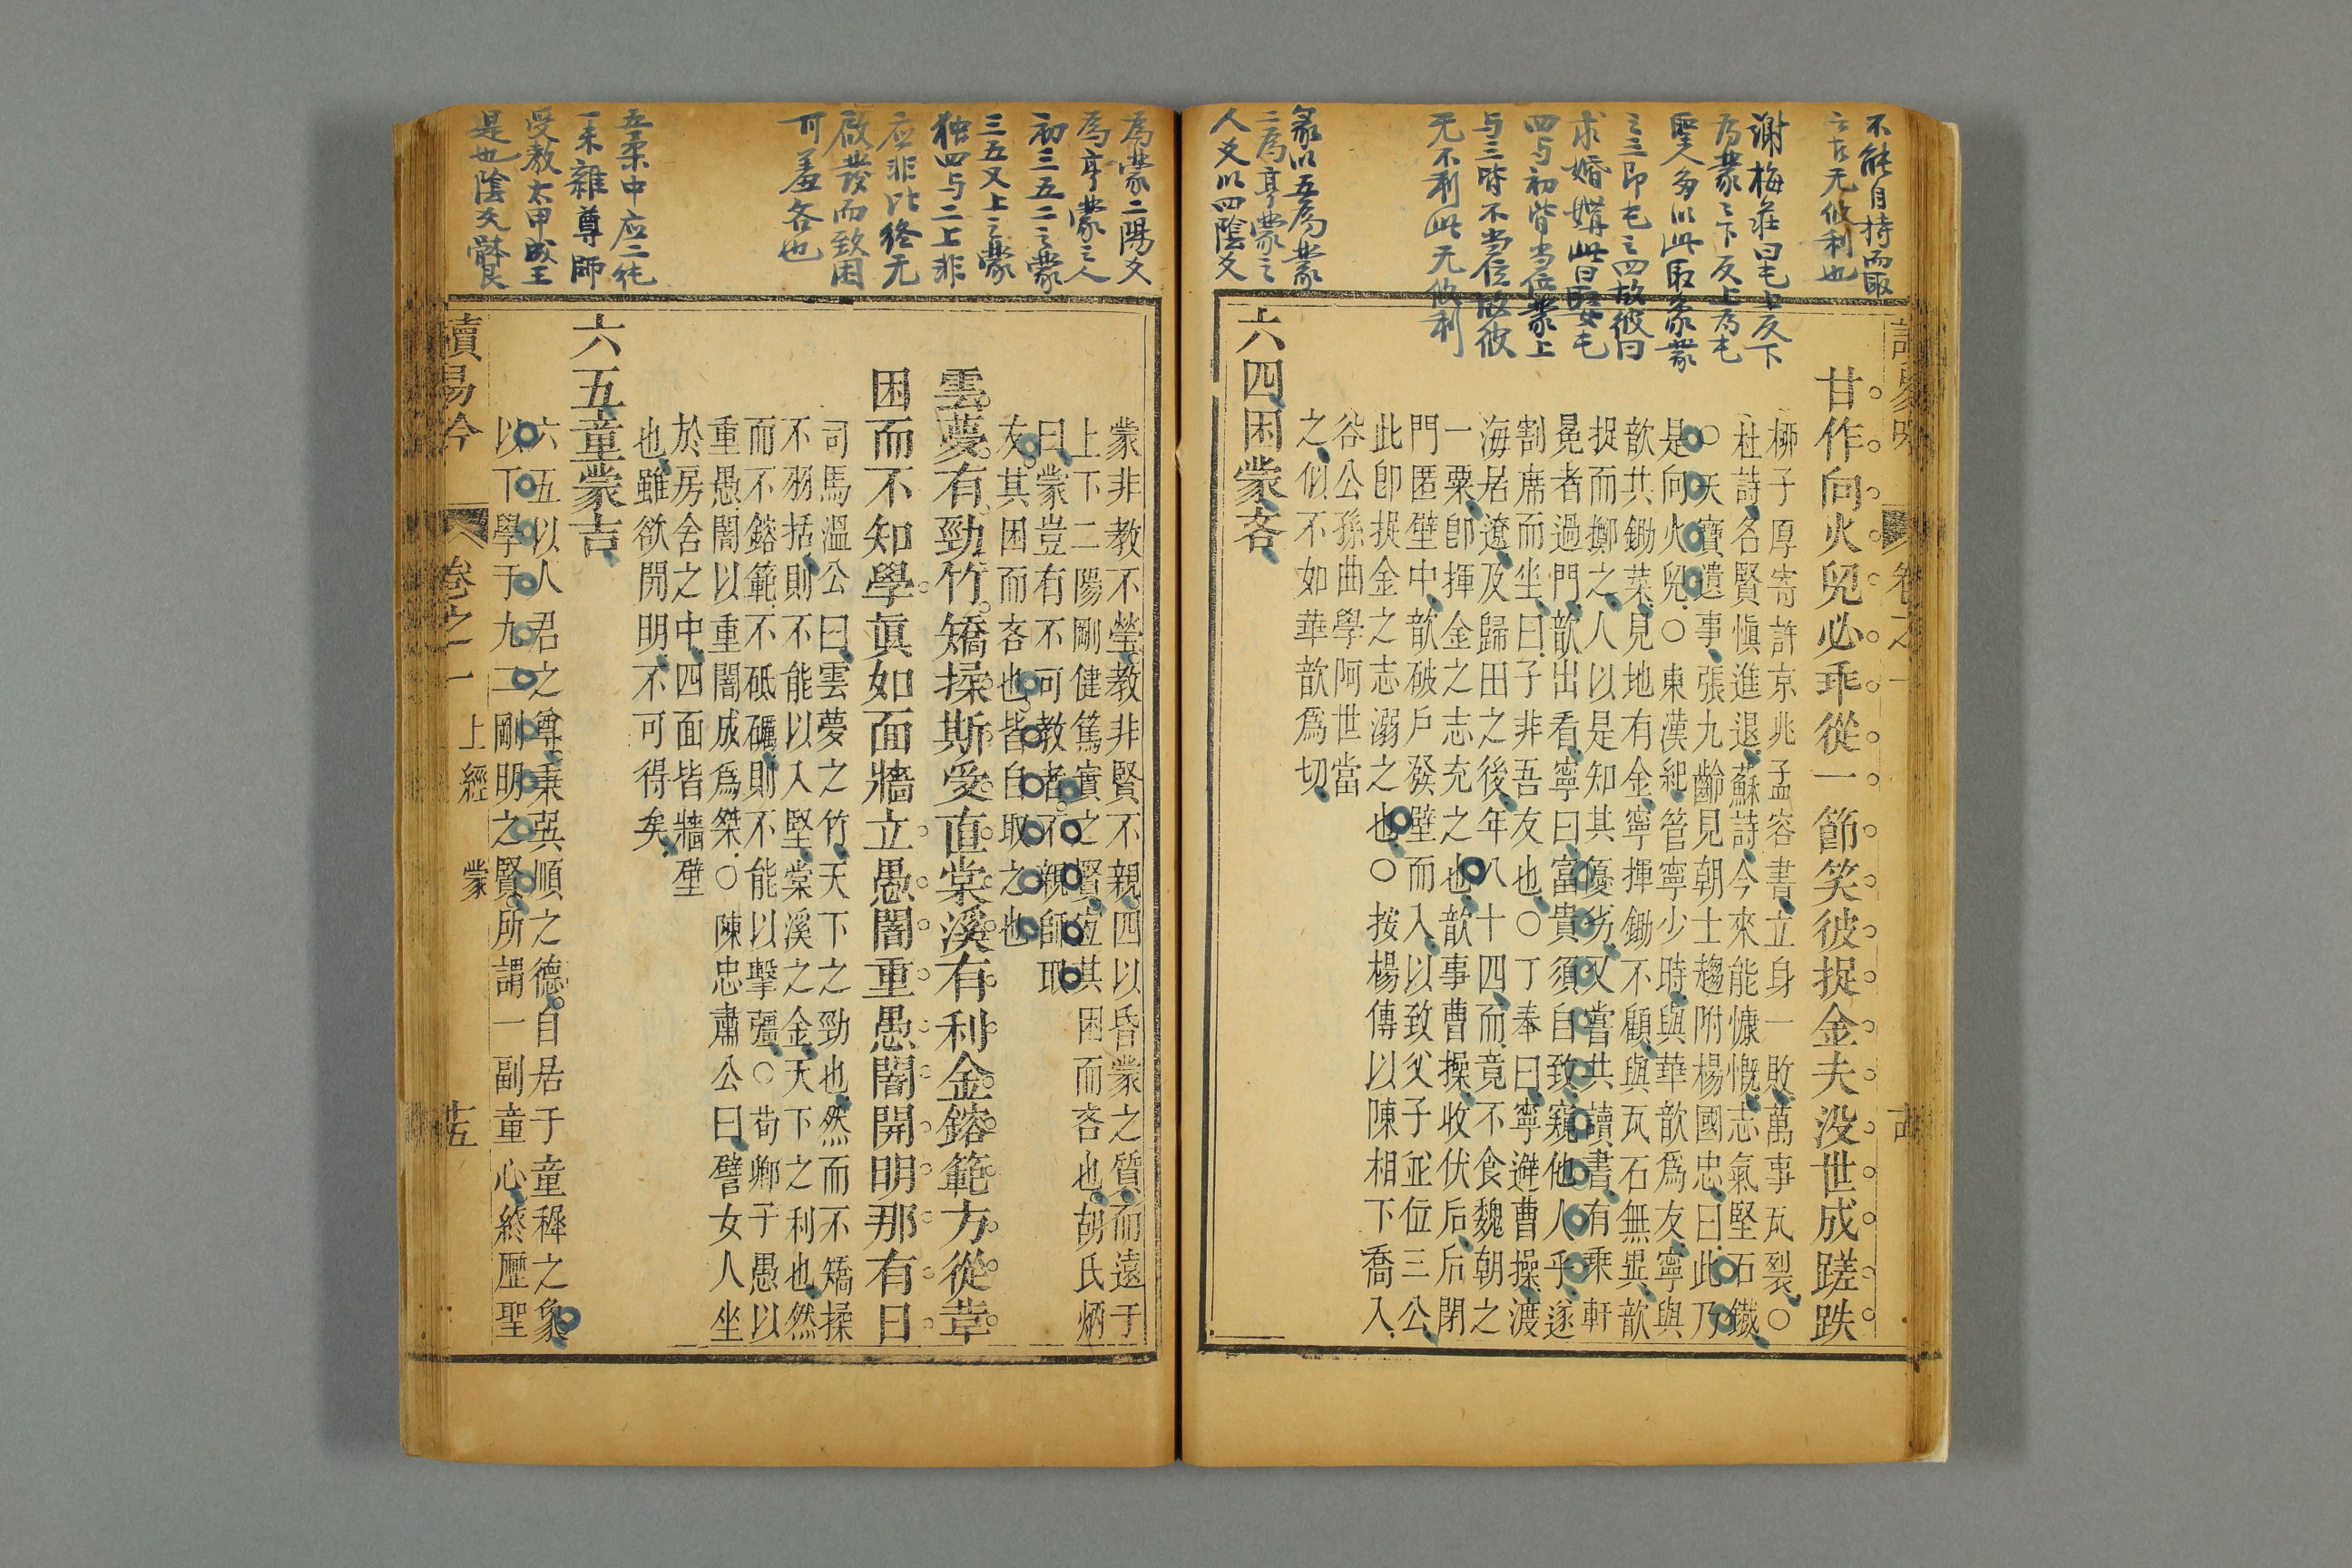 不能自持而取
亡无攸利也
謝梅莊曰屯上反下
為蒙蒙之下反上為屯
聖人多以此取象蒙
之三即屯之四故彼曰
求婚媾此曰取女屯
四与初皆当位蒙上
与三皆不当位故彼
无不利此无攸利
甘作向火兒必乖從一節笑彼捉金夫没世成蹉跌
柳子厚寄許京兆孟容書立身一敗萬事瓦裂○
杜詩名賢愼進退蘇詩今來能慷慨志氣堅石鐵
○天寶遺事張九齡見朝士趨附楊國忠曰此乃
是向火兒○東漢紀管寧少時與華歆爲友寧與
歆共鋤菜見地有金寧揮鋤不顧與瓦石無異歆
捉而擲之人以是知其優劣又嘗共讀書有乗軒
冕者過門歆出看寧曰富貴須自致窺他人乎遂
割席而坐曰子非吾友也○丁奉曰寧避曹操渡
海居遼及歸田之後年八十四而竟不食魏朝之
一粟卽揮金之志充之也歆事曹操收伏后后閉
門匿壁中歆破戶發壁而入以致父子並位三公
此卽捉金之志溺之也○按楊傳以陳相下喬入
谷公孫曲學阿世當
之似不如華歆爲切
六四困蒙吝
彖以五為蒙
二為亨蒙之
人爻以四陰爻
為蒙二陽爻
為亨蒙之人
初三五二之蒙
三五又上之蒙
独四与二上非
应非比終无
啟發而致困
可羞吝也
五柔中应二純
一未雜尊師
受教太甲成王
是也陰爻體艮
蒙非教不瑩教非賢不親四以昏蒙之質而遠于
上下二陽剛健篤實之賢宜其困而吝也胡氏炳
曰蒙豈有不可教者不親師取
友其困而吝也皆自取之也
雲夢有勁竹矯揉斯受直棠溪有利金鎔範方從革
困而不知學眞如面牆立愚闇重愚闇開明那有日
司馬溫公曰雲夢之竹天下之勁也然而不矯揉
不羽括則不能以入堅棠溪之金天下之利也然
而不鎔範不砥礪則不能以擊彊○荀卿子愚以
重愚闇以重闇成爲桀○陳忠肅公曰譬女人坐
於房舍之中四面皆牆壁
也雖欲開明不可得矣
六五童蒙吉
六五以人君之尊秉巽順之德自居于童穉之象
以下學于九二剛明之賢所謂一副童心終歷聖
讀易今 卷之一 上經 蒙 十五